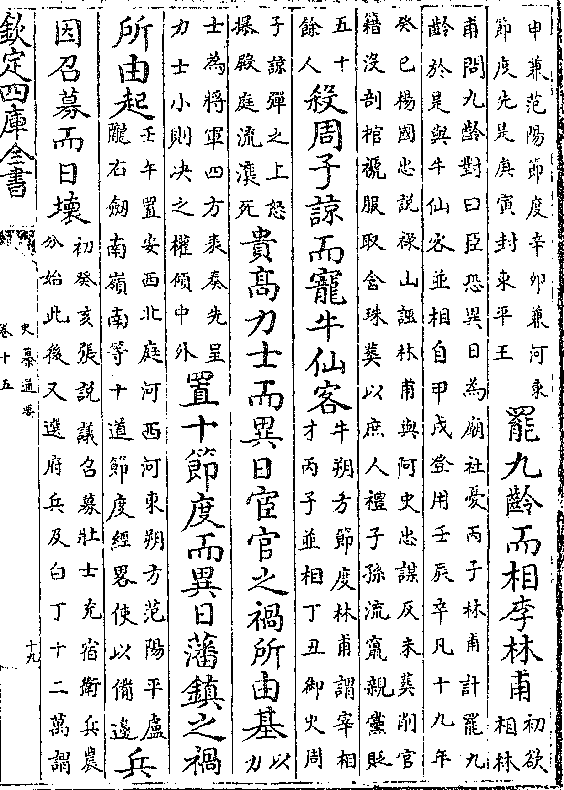 申兼范陽節度辛卯兼河東
節度先是庚寅封東平王
罷九齡而相李林甫
初欲
相林
甫問九齡對曰臣恐異日為廟社憂丙子林甫計罷九
齡於是與牛仙客並相自甲戌登用壬辰卒凡十九年
癸巳楊國忠說祿山誣林甫與阿史忠謀反未葬削官
籍沒剖棺褫服取含珠葬以庶人禮子孫流竄親黨貶
五十
餘人
殺周子諒而寵牛仙客
牛朔方節度林甫謂宰相
才丙子並相丁丑御史周
子諒彈之上怒
撲殿庭流瀼死
貴高力士而異日宦官之禍所由基
以
力
士為將軍四方表奏先呈
力士小則决之權傾中外
置十節度而異日藩鎮之禍
所由起
壬午置安西北庭河西河東朔方范陽平盧
隴右劒南嶺南等十道節度經畧使以備邊
兵
因召募而日壞
初癸亥張說議召募壯士充宿衛兵農
分始此後又選府兵及白丁十二萬謂
欽定四庫全書
史纂通要
卷十五
十九